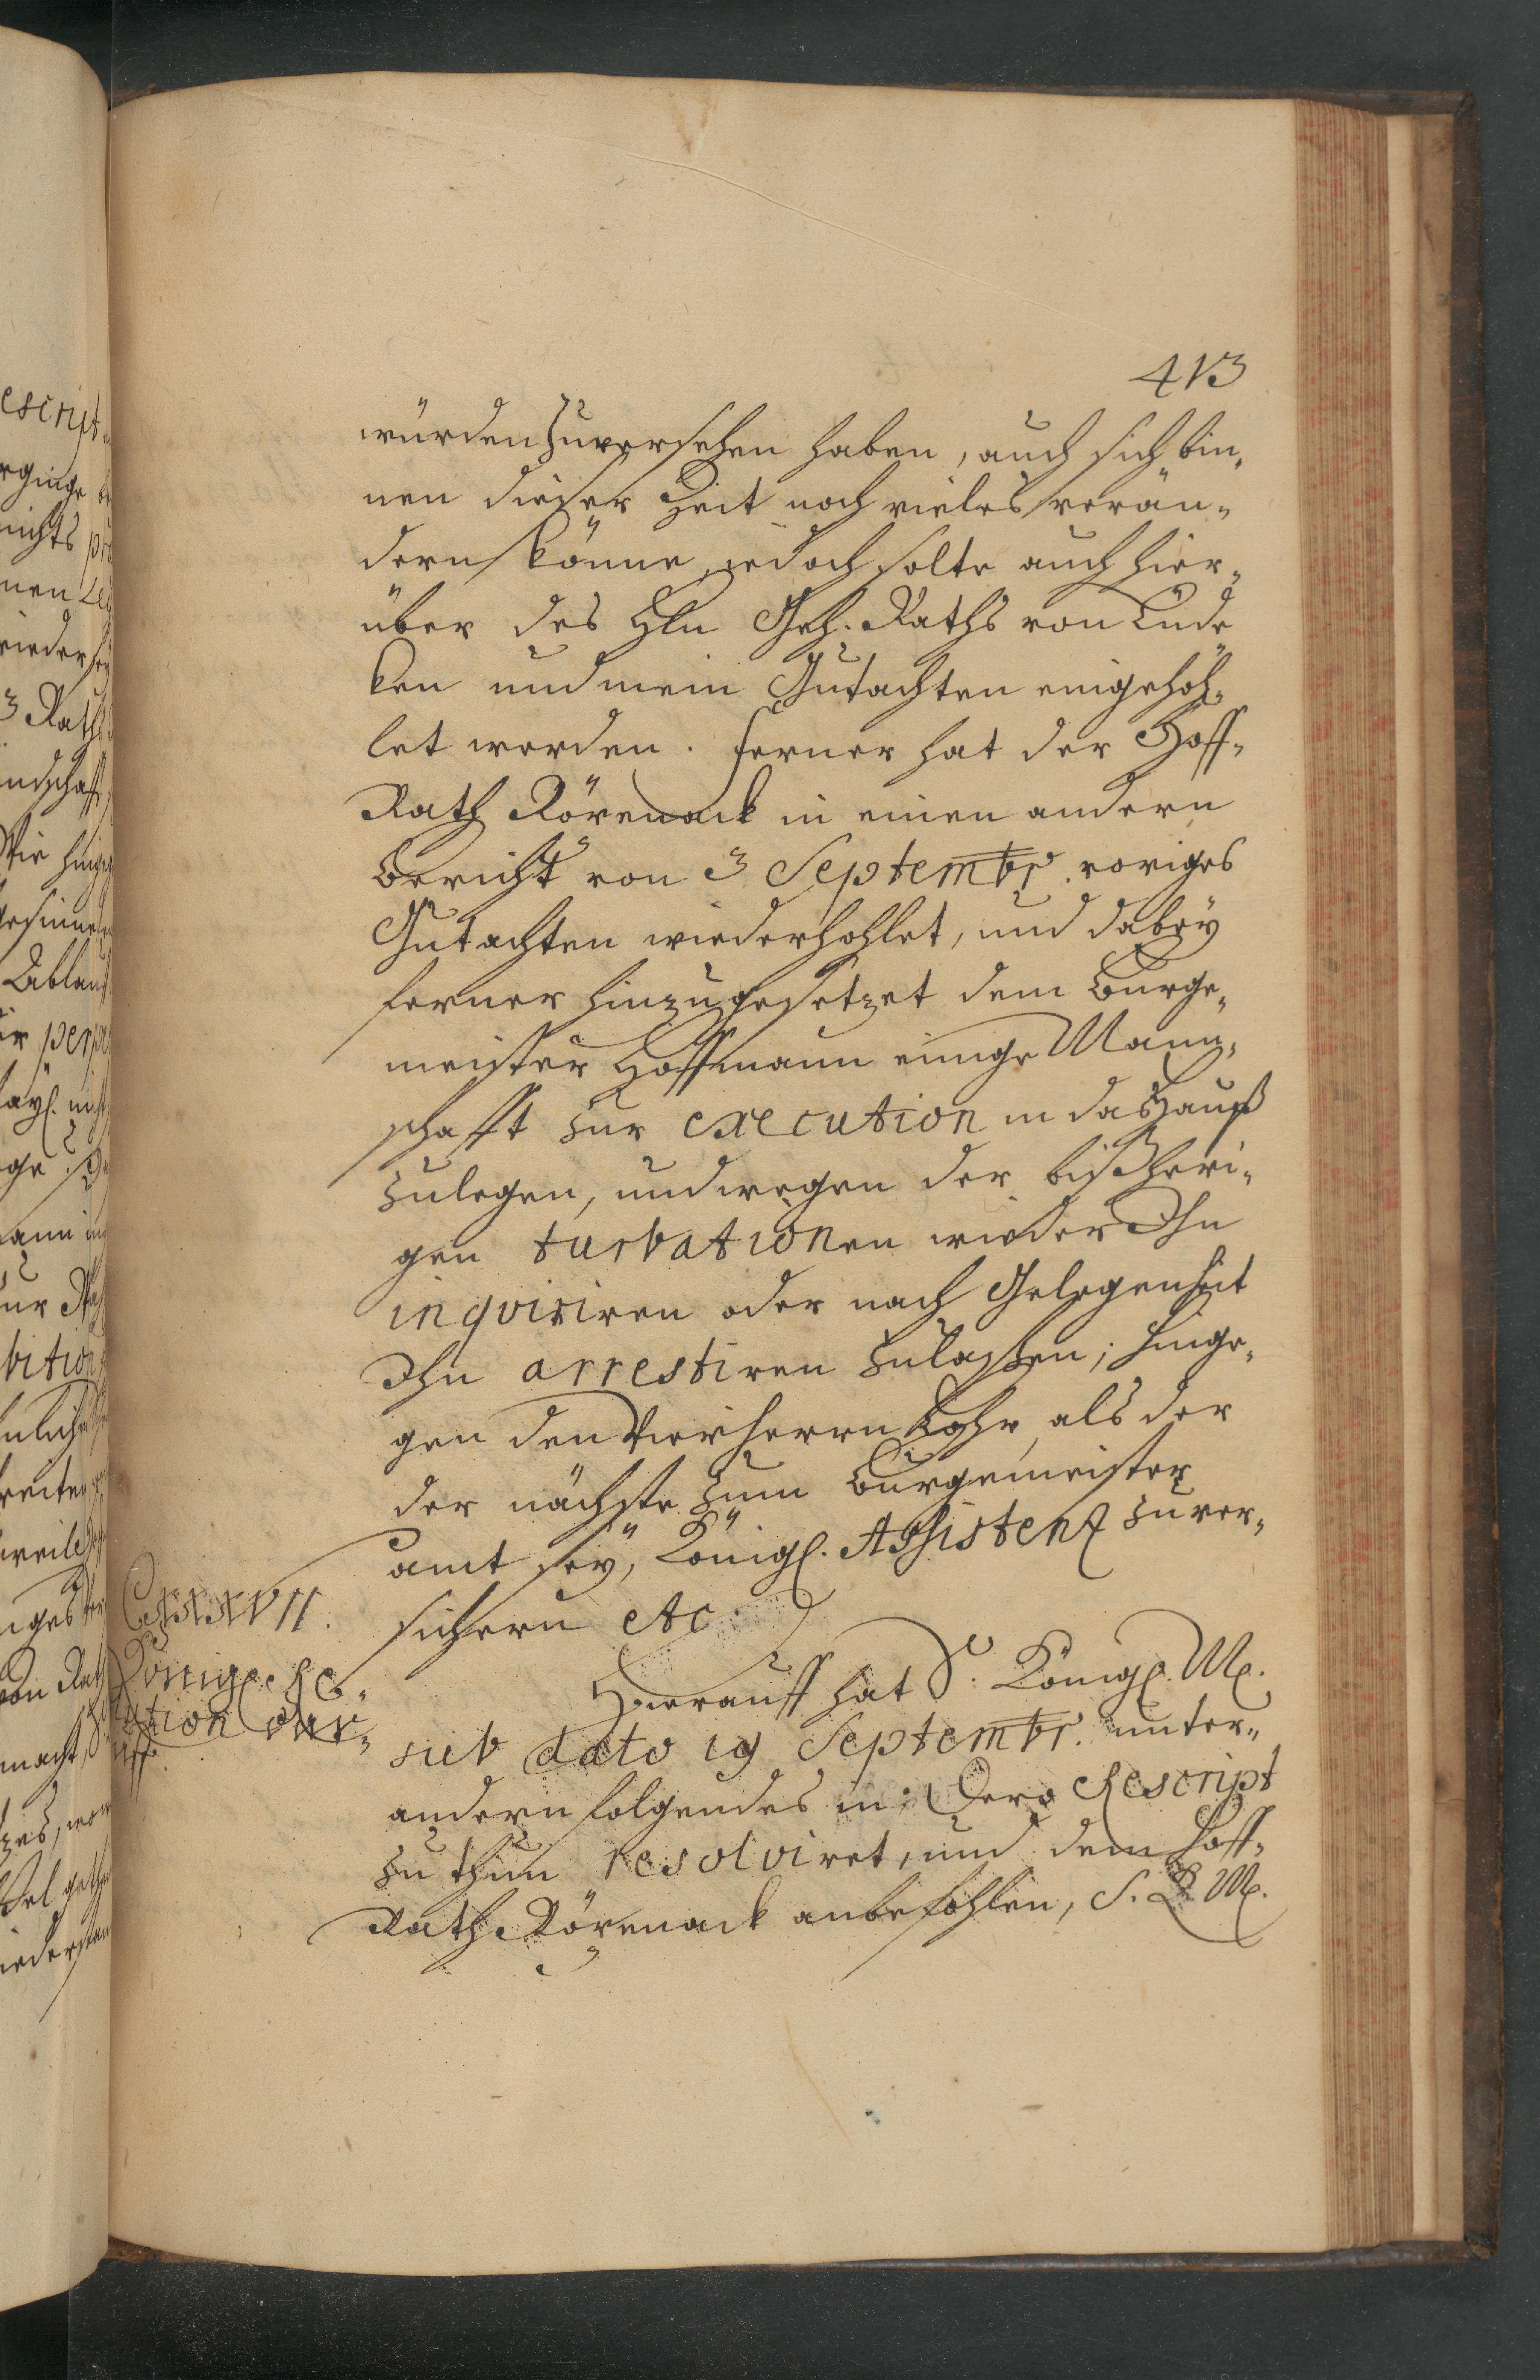 413
würden zuversehen haben, auch sich bin„
nen dieser Zeit noch vieles verän„
dern könne, jedoch solte auch hier„
über des Hln Geh. Raths von Lüde
ken und mein Gutachten eingehoh„
let werden. ferner hat der Hoff„
Rath Rövenack in einen andern
Bericht von 3 Septembr. voriges
Gutachten wiederhohlet, und dabey
ferner hinzugesetzet dem Burge„
meister Hoffmann einige Mann„
schafft zur execution in das Hauß
zulegen, und wegen der bißheri„
gen turbationen wieder Ihn
inqviriren oder nach Gelegenheit
Ihn arrestiren zulassen; hinge„
gen den Vierherrn Lohr, als der
der nächste zum Burgemeister
amt sey, Königl. Assistenz zuver„
sichern etc.
Hierauff hat S. Königl. M.
sub dato 19 Septembr. unter„
andern folgendes in Dero Rescript
zu thun resolviret, und dem Hoff„
Rath Rövenack anbefohlen, S. K. M.
CCXXXXVII.
König. Reso„
lution dar„
uff.